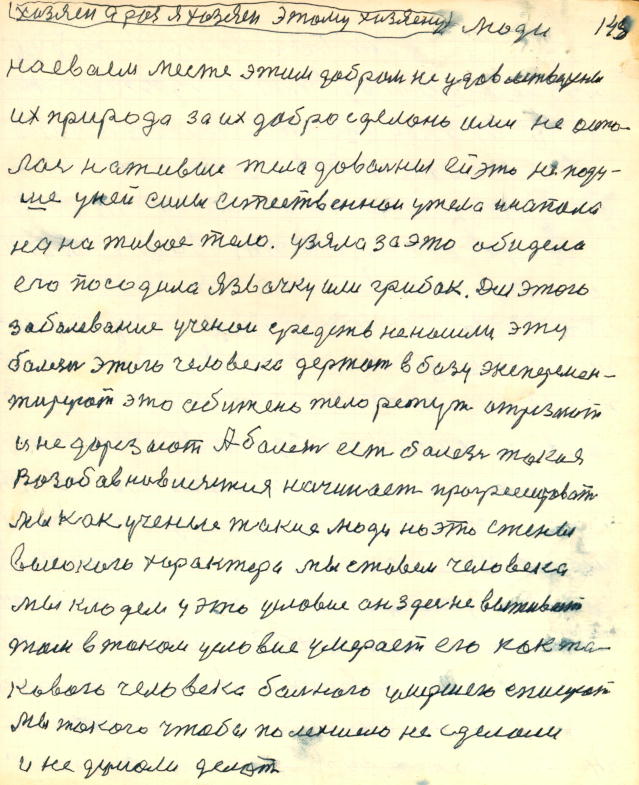 хозяен а роз я хозяен этому хозяену) Люди 149
на своем месте этим добром не удовлетворены
их природа за их добро сделоно ими не оста-
лас на живые тела доволныи ей это не поду-
ше у ней силы естественнои ужела и напала
на на живое тело. узяла за это обидела
его посодила Язвачку или грибок. Для этого
заболевание ученои средств не нашли, эту
болезн этого человека держат в базу эксперемен-
тируют это обижено тело режут отрезают
и не дорезают А болеет ест болезн такая
Возобавновляития начинает прогресироват
мы как ученые такие люди но это стены
высокого характера мы ставем человека
мы кладем у это условие он здес не выживает
там в таком условие умерает его как та-
кового человека болного умершего списуют
мы такого чтобы полегшело не сделали
и не думали делат